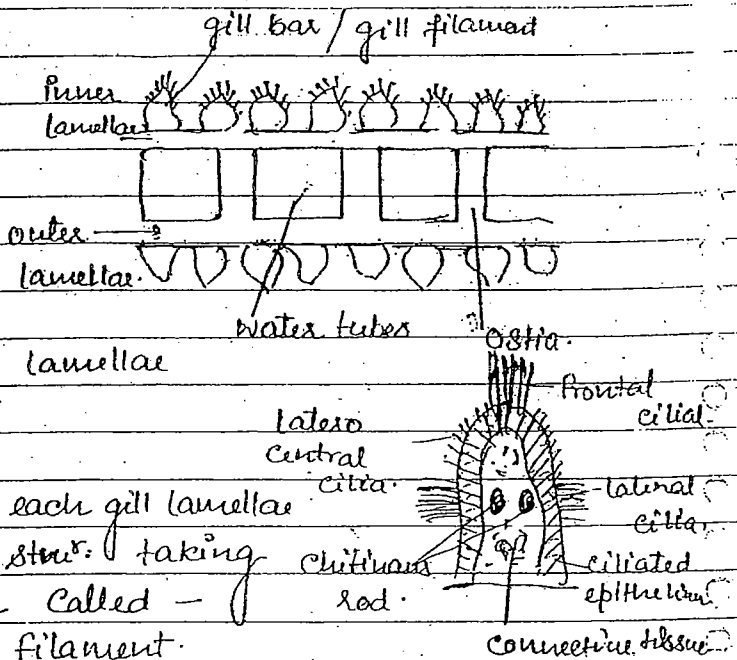 gill bar / gill filament
Inner
lamellae
outer
lamellae.
water tubes
Ostia.
lamellae
frontal
cilial
latero
central
cilia.
each gill lamellae
lateral
cilia.
strur. taking
Chitinous
rod.
ciliated
epithelium
- Called -
filament.
connective tissue